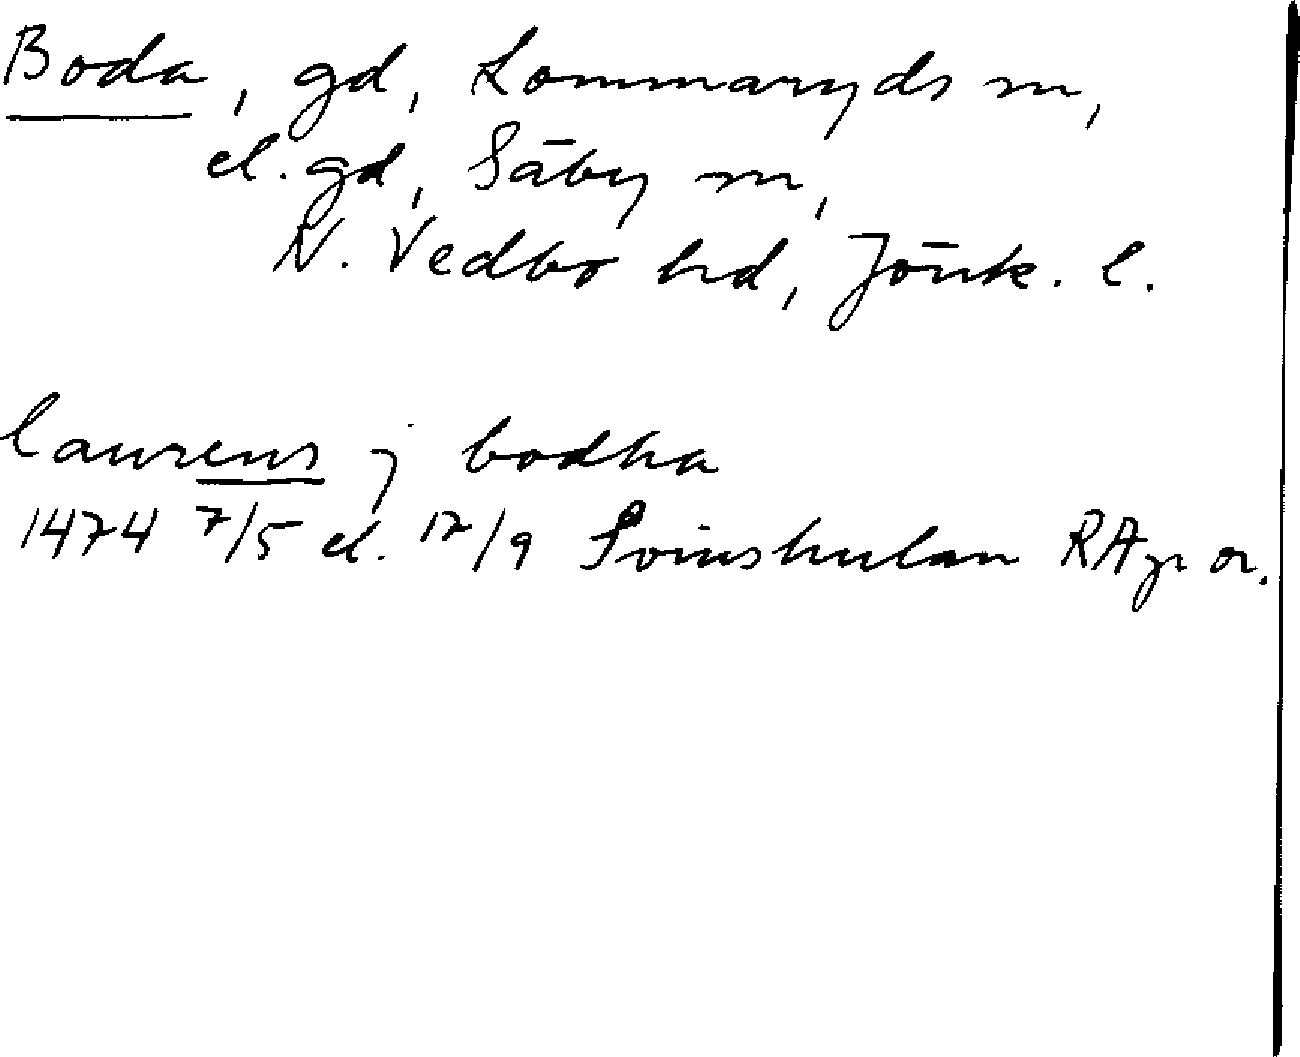 Boda, gd, Lommaryds sn,
el. gd, Säby sn,
N. Vedbo hd, Jönk. l.
laurens j bodha
1474 7/5 el. 17/9 Svinhulan RAp or.